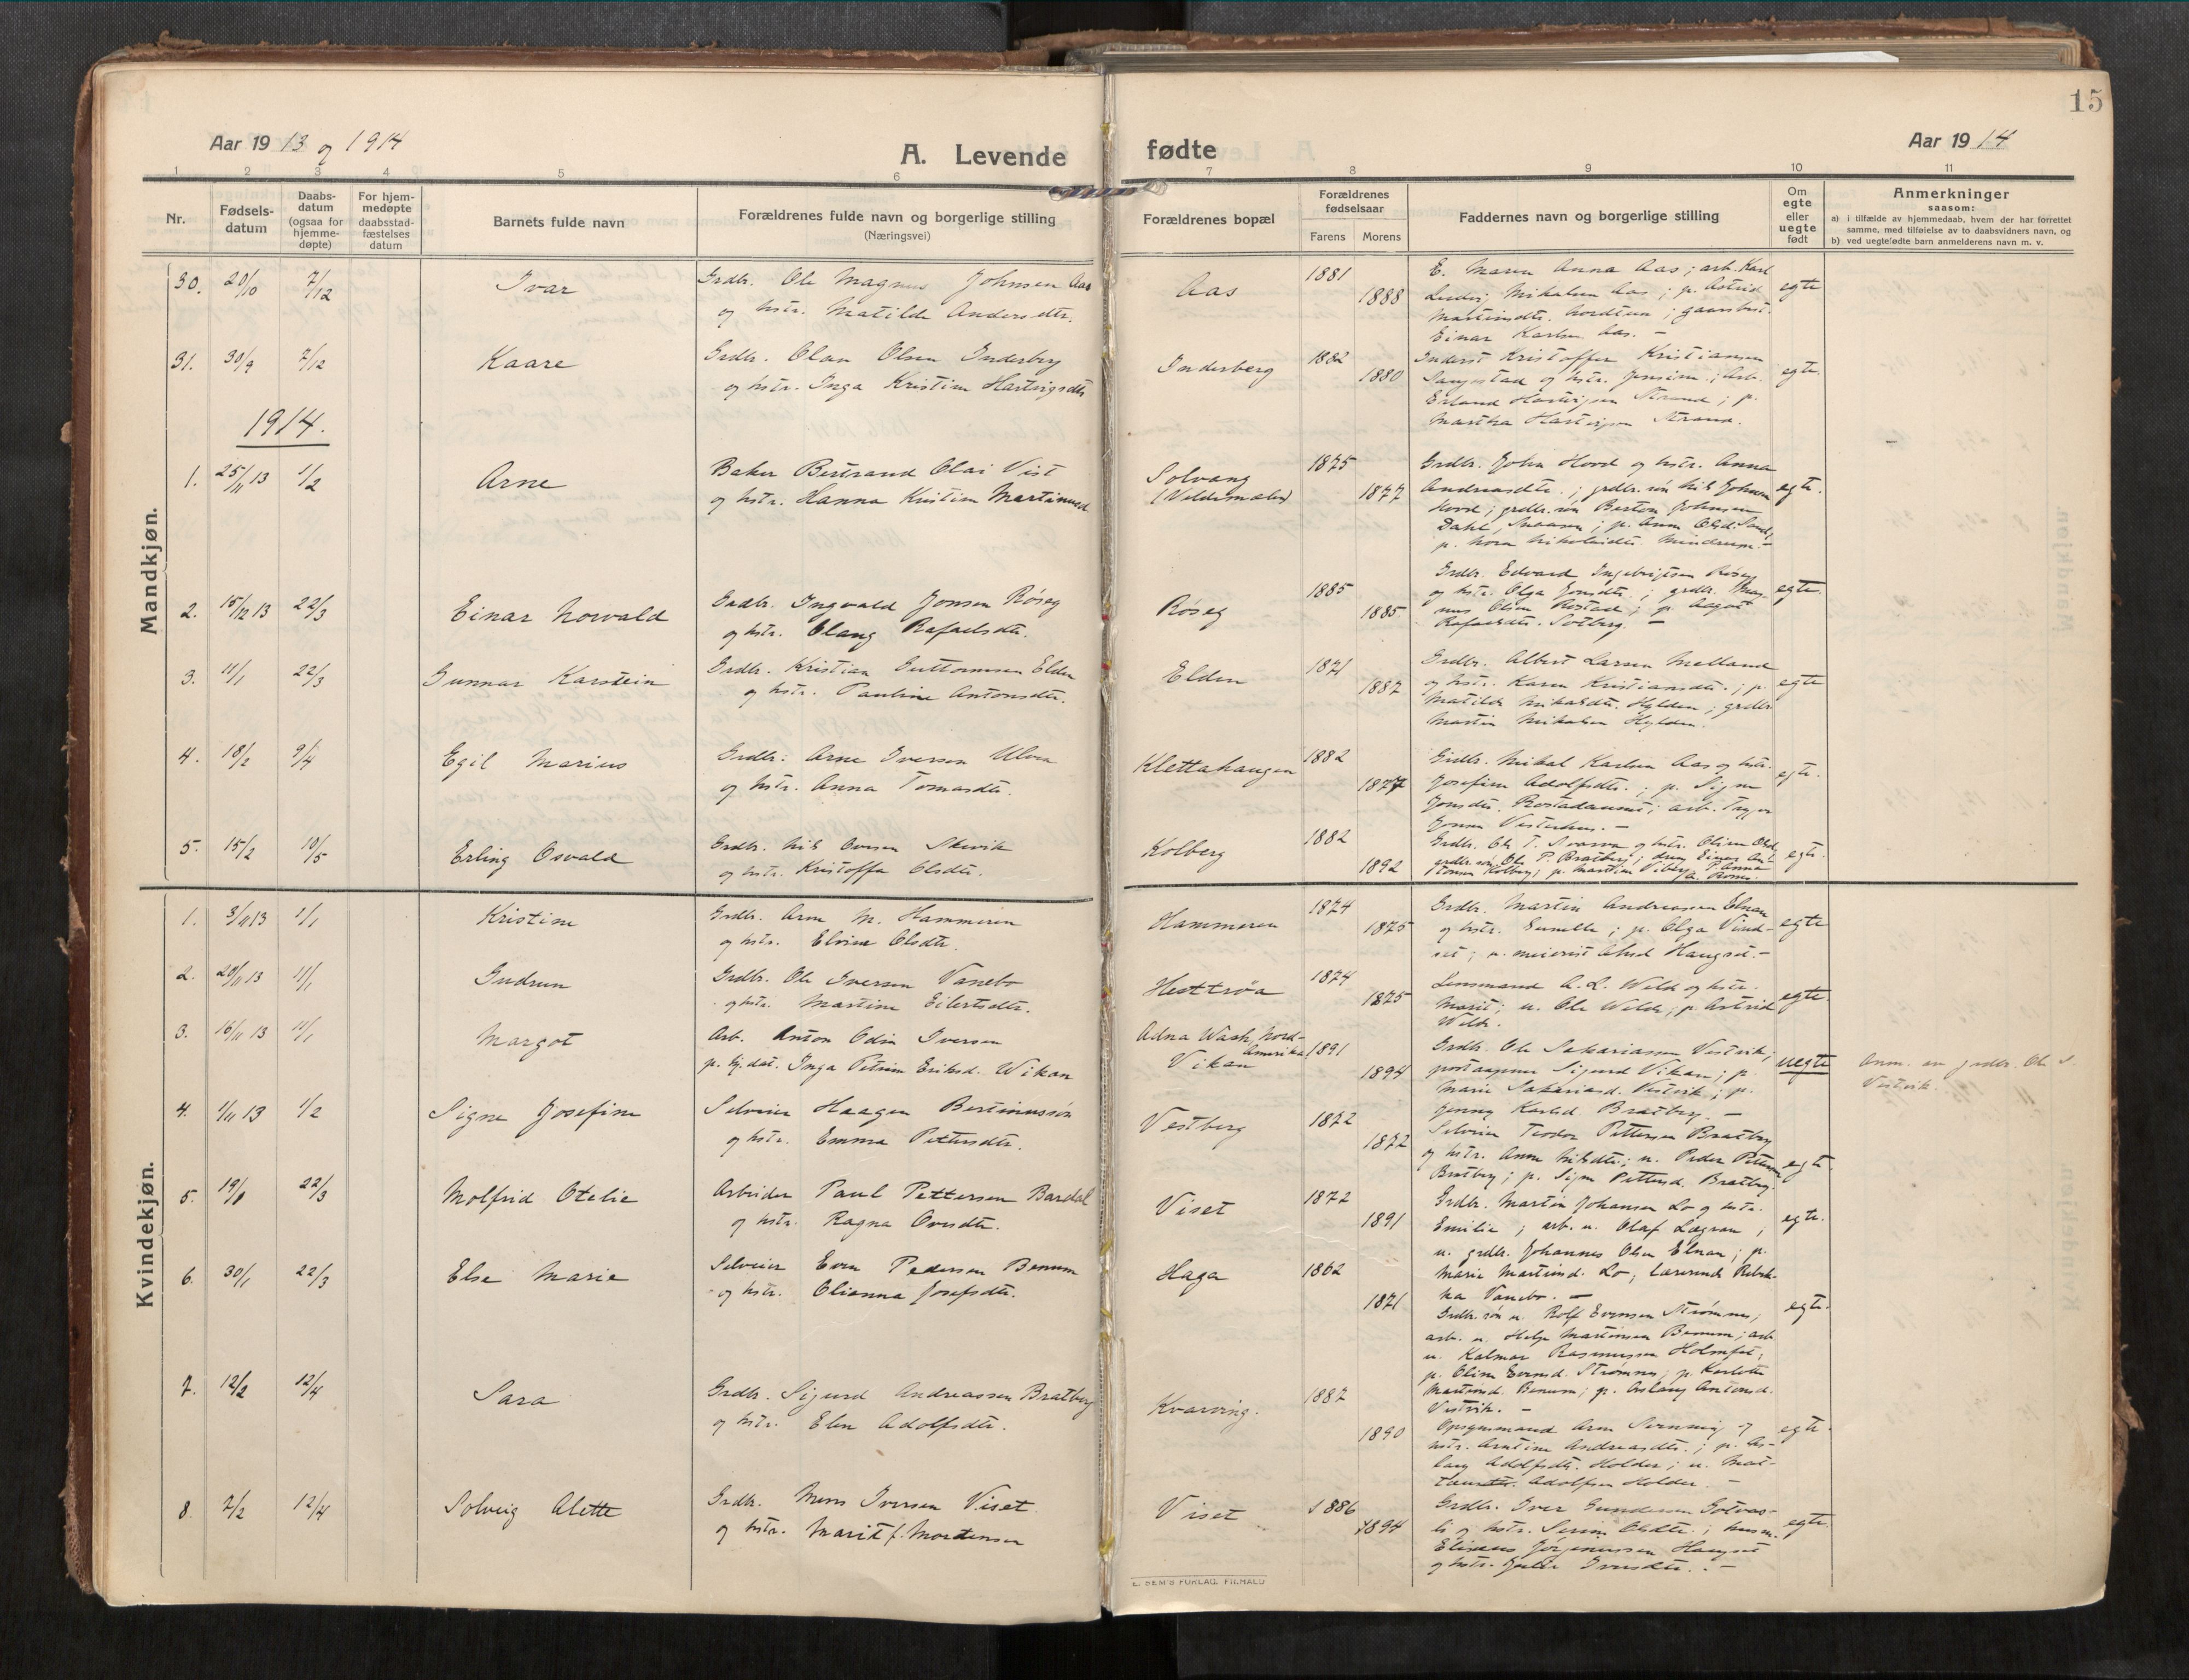 15
Aar 1913 og 1914
A. Levende
fødte
Aar 1914
1 2 3 4 5 6 7 8 9 10 11
Nr.
Fødsels-
datum
Daabs-
datum
(ogsaa for
hjemme-
døpte)
For hjem-
medøpte
daabsstad-
fæstelses
datum
Barnets fulde navn
Forældrenes fulde navn og borgerlige stilling
(Næringsvei)
Forældrenes bopæl
Forældrenes
fødselsaar
Farens Morens
Faddernes navn og borgerlige stilling
Om
egte
eller
uegte
født
Anmerkninger
saasom:
a) i tilfælde av hjemmedaab, hvem der har forrettet
samme, med tilføielse av to daabsvidners navn, og
b) ved uegtefødte barn anmelderens navn m. v.
Mandkjøn.
30. 20/10 7/12 Ivar
Grdbr. Ole Magnus Johnsen Aas
og hstr. Matilde Andersdtr.
Aas 1881 1888
E. Maren Anna Aas; arb. Karl
Ludvig Mikalsen Aas; p. Astrid
Martinsdtr. Nordtun; gaardbst.
Einar Karlsen Aas. –
egte
31. 30/9 7/12 Kaare
Grdbr. Olav Olsen Inderberg
og hstr. Inga Kristine Hartvigsdtr
Inderberg 1882 1880
Inderst Kristoffer Kristiansen
og hstr. Jensine; Arb.
Erland Hartvigsen Strand; p.
Martha Hartvigsen Strand.
egte.
1914.
1. 25/11 13 1/2 Arne
Baker Bertrand Olai Vist
og hstr. Hanna Kristine Martinusd
Solvang
(Veldemælen)
1875 1877
Grdbr. John Hovd og hstr. Anna
Andreasdtr.; grdbr. søn Nils Johnsen
Hovd; grdbr. søn Berton Johnsen
Dahl, Snaasen; p. Anna Olsd. Sand;
p. Nora Nikolaidtr. Mindrum. –
egte.
2. 15/12 13 22/3 Einar Norvald
Grdbr. Ingvald Jonsen Røseg
og hstr. Olaug Rafaelsdtr.
Røseg 1885 1885
Grdbr. Edvard Ingebrigtsen Røseg
og hstr. Olga Jonsdtr.; grdbr. Mag-
nus Olsen Rostad; p. Aagot
Rafaelsdtr. Solberg. –
egte.
3. 11/1 22/3 Gunnar Karstein
Grdbr. Kristian Guttormsen Elden
og hstr. Pauline Antonsdtr.
Elden 1871 1887
Grdbr. Albert Larsen Melland
og hstr. Karen Kristiansdtr.; p.
Matilde Mikalsdtr. Hylden; grdbr.
Martin Mikalsen Hylden.
egte
4. 18/2 9/4 Egil Marius
Grdbr. Arne Iversen Ulven
og hstr. Anna Tomasdtr.
Klettahaugen 1882 1877
Grdbr. Mikal Karlsen Aas og hstr.
Josefine Adolfsdtr.; p. Signe
Jonsdtr. Rostadaunet; arb. Trygve
Jonsen Vesterhus. –
egte.
5. 15/2 10/5 Erling Osvald
Grdbr. Nils Ovesen Skevik
og hstr. Kristoffa Olsdtr.
Kolberg 1882 1892
Grdbr. Ole T. og hstr. Oline Olsd;
grdbr. søn Ole P. Bratberg; dreng Einar An-
tonsen Kolberg; p. Martine Viberg; p. Anna
egte.
Kvindekjøn.
1. 3/11 13 1/1 Kristine
Grdbr. Arne M. Hammeren
og hstr. Elvine Olsdtr.
Hammeren 1874 1875
Grdbr. Martin Andreassen Elnan
og hstr. Gunille; p. Olga Vind-
set; u. meierist Alud Haugset. –
egte
2. 20/11 13 11/1 Gudrun
Grdbr. Ole Iversen Vanebo
og hstr. Martine Eilertsdtr.
Hestrøa 1874 1875
Lensmand A. L. Welde og hstr.
Marit; u. Ole Welde; p. Astrid
Welde.
egte.
3. 16/11 13 11/1 Margot
Arb. Anton Odin Iversen
p. tj. dat. Inga Petrine Eriksd. Wikan
Adna Wash, Nord-
Amerika
Vikan
1891 1894
Grdbr. Ole Sakariassen Vestvik;
postaapner Sigurd Vikan; p.
Marie Sakariasd. Vestvik; p.
Jenny Karlsd Bratberg. –
uegte
Anm. av grdbr. Ole S.
Vestvik.
4. 1/11 13 1/2 Signe Josefine
Selveier Haagen Bertinussøn
og hstr. Emma Pettersdtr.
Vestberg 1872 1872
Selveier Teodor Pettersen Bratberg
og hstr. Anne Nilsdtr.; u. Peder Pettersen
Bratberg; p. Signe Pettersd. Bratberg.
egte.
5. 19/8 22/3 Molfrid Otelie
Arbeider Paul Pettersen Bardal
og hstr. Ragna Ovesdtr.
Viset 1872 1891
Grdbr. Martin Johansen Lo og hstr.
Emilie; arb. u. Olaf Lægran;
u. grdbr. Johannes Olsen Elnan; p.
Marie Martinsd. Lo; lærerinde Rebek-
ka Vanebo. –
egte.
6. 30/1 22/3 Else Marie
Selveier Even Pedersen Benum
og hstr. Olianna Josefsdtr.
Haga 1862 1871
Grdbr. søn u. Rolf Evensen Strømnes;
arb. u. Helge Martinsen Benum; arb
u. Kalmar Rasmussen Holmset;
p. Oline Evensd. Strømnes; p. Karlotte
Martinsd. Benum; p. Aslaug Antonsd.
Vestvik. –
egte.
7. 12/2 12/4 Sara
Grdbr. Sigurd Andreassen Bratberg
og hstr. Elen Adolfsdtr.
Kvarving. 1887 1890
Opsynsmand Arne Svenning og
hstr. Arntine Andreasdtr.; p. As-
laug Adolfsdtr. Holder; u. Mar-
Adolfsen Holder. –
egte.
8. 7/2 12/4 Solveig Alette
Grdbr. Mons Iversen Viset
og hstr. Marit f. Mortensen
Viset 1886 1894
Grdbr. Iver Gundersen Gotvas-
li og hstr. Serine Olsdtr.; husm.
Eliseus Jørgenussen Haugset
og hstr. Julie Iversdtr. –
egte.
E. SEM'S FORLAG. FR.HALD